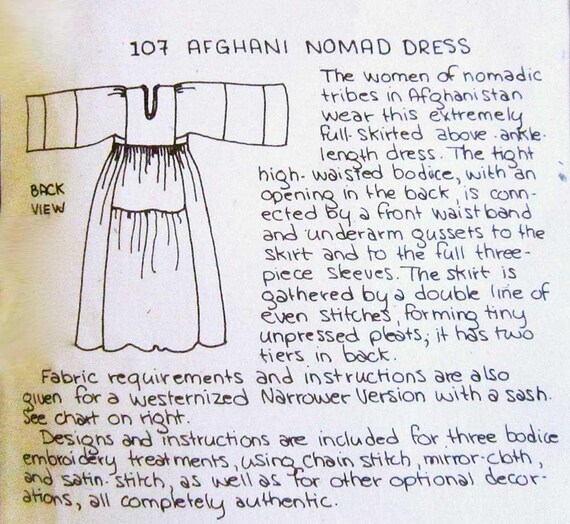 107 AFGHANI NOMAD DRESS
The women of nomadic
tribes in Afghanistan
wear this extremely
full-skirted above-ankle-
length dress. The tight
high-waisted bodice, with an
opening in the back, is conn-
ected by a front waistband
and underarm gussets to the
skirt and to the full three-
piece sleeves. The skirt is
gathered by a double line of
even stitches, forming tiny
unpressed pleats; it has two
tiers in back.
BACK
VIEW
Fabric requirements and instructions are also
given for a Westernized Narrower Version with a sash.
See chart on right.
Designs and instructions are included for three bodice
embroidery treatments, using chain stitch, mirror-cloth,
and satin-stitch, as well as for other optional decor-
ations, all completely authentic.